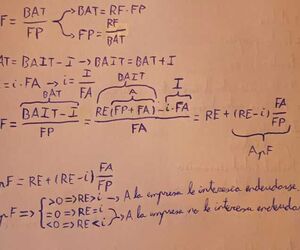 F = BAT/FP → BAT = RF·FP
→ FP = RF/BAT
AT = BAIT - I → BAIT = BAT + I
= i·FA → i = I/FA
F = BAIT - I / FP = RE(FP+FA) - i·FA / FA = RE + (RE-i) FA/FP
BAT BAIT A I
nF = RE + (RE-i) FA/FP
F ⇒ >0 ⇒ RE>i → A la empresa le interesa endeudarse
=0 ⇒ RE=i
<0 ⇒ RE<i → A la empresa no le interesa endeudar